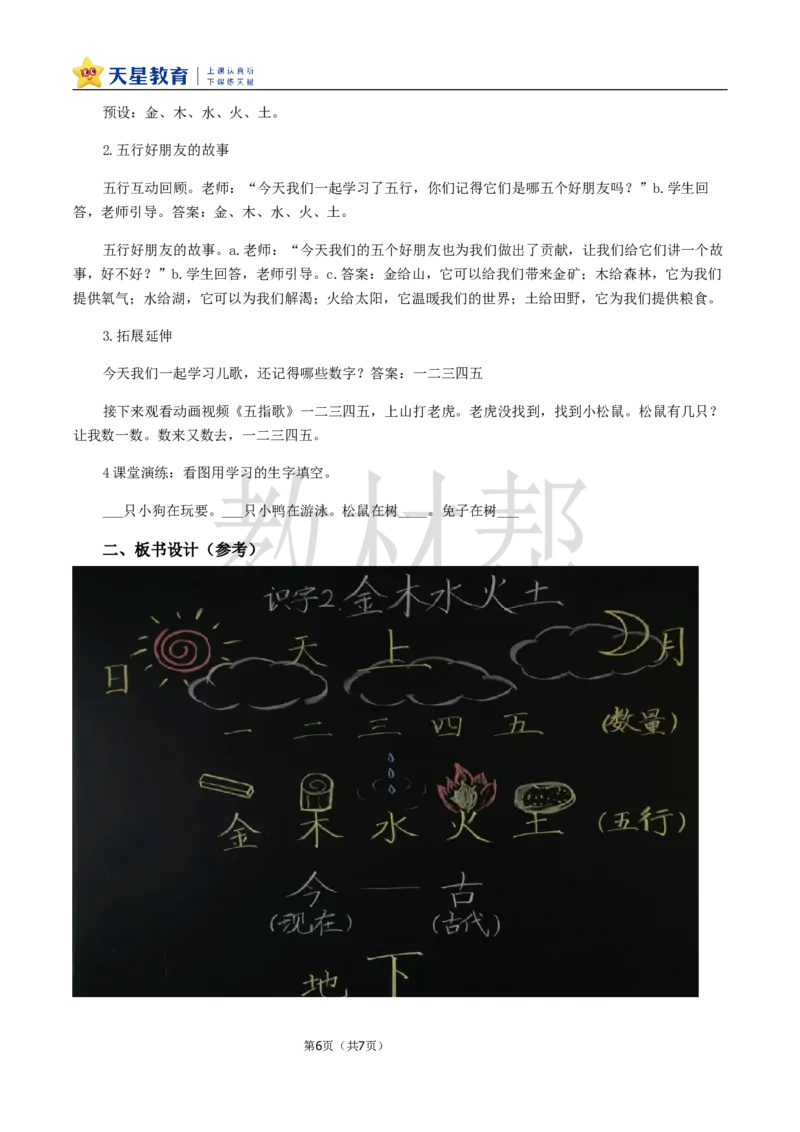 天星教育
上课认真听
下课练天星
预设：金、木、水、火、土。
2.五行好朋友的故事
五行互动回顾。老师：“今天我们一起学习了五行，你们记得它们是哪五个好朋友吗？”b.学生回
答，老师引导。答案：金、木、水、火、土。
五行好朋友的故事。a.老师：“今天我们的五个好朋友也为我们做出了贡献，让我们给它们讲一个故
事，好不好？”b.学生回答，老师引导。c.答案：金给山，它可以给我们带来金矿；木给森林，它为我们
提供氧气；水给湖，它可以为我们解渴；火给太阳，它温暖我们的世界；土给田野，它为我们提供粮食。
3.拓展延伸
今天我们一起学习儿歌，还记得哪些数字？答案：一二三四五
接下来观看动画视频《五指歌》一二三四五，上山打老虎。老虎没找到，找到小松鼠。松鼠有几只？
让我数一数。数来又数去，一二三四五。
4 课堂演练：看图用学习的生字填空。
___只小狗在玩耍。___只小鸭在游泳。松鼠在树____。兔子在树___
教材邦
二、板书设计（参考）
识字2.金木水火土
日 天 上 月
一 二 三 四 五 (数量)
金 木 水 火 土 (五行)
今 — 古
(现在) (古代)
地 下
第6页（共7页）